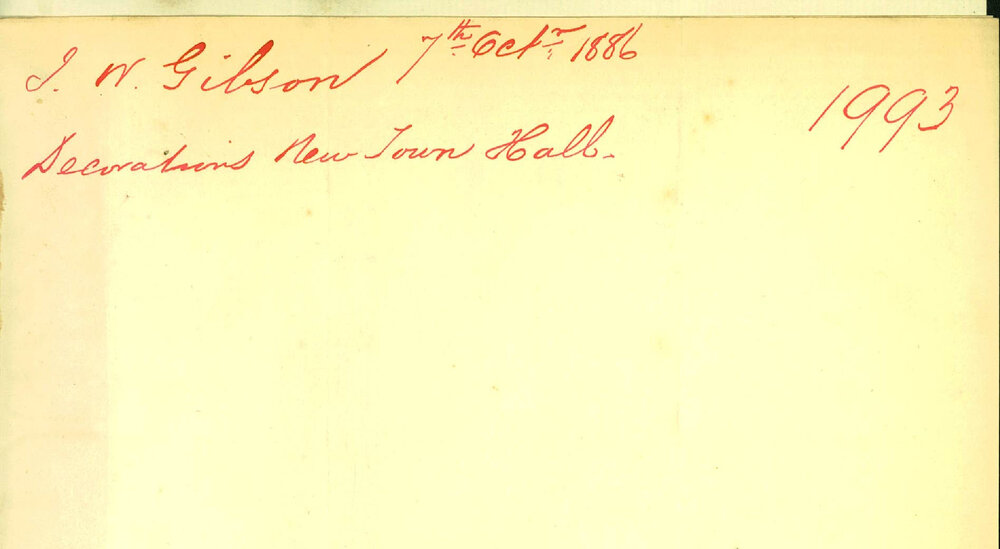 J. W. Gibson 7th Octr 1886
1993
Decorations New Town Hall.